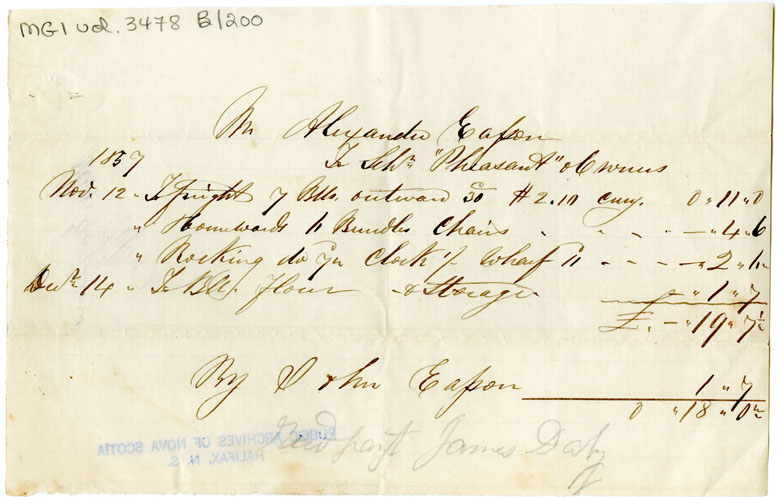 MG1 vol. 3478 B/200
Mr Alexander Eason
1857 To Schr "Pheasant" & Owners
Nov. 12 To freight 7 Blls. outward $2.10 cury. 0 " 11 " 0
" Homewards Bundles Chairs - - - - " 4 " 6
" Rocking do Clock Wharf - - - - " 2 "
Decr 14 " To Blls. flour & Storage " 1 " 7
£. - " 19 " 7½
By John Eason 1 " 7
0 " 18 " 0½
Recd payt James Daly
PUBLIC ARCHIVES OF NOVA SCOTIA
HALIFAX, N. S.